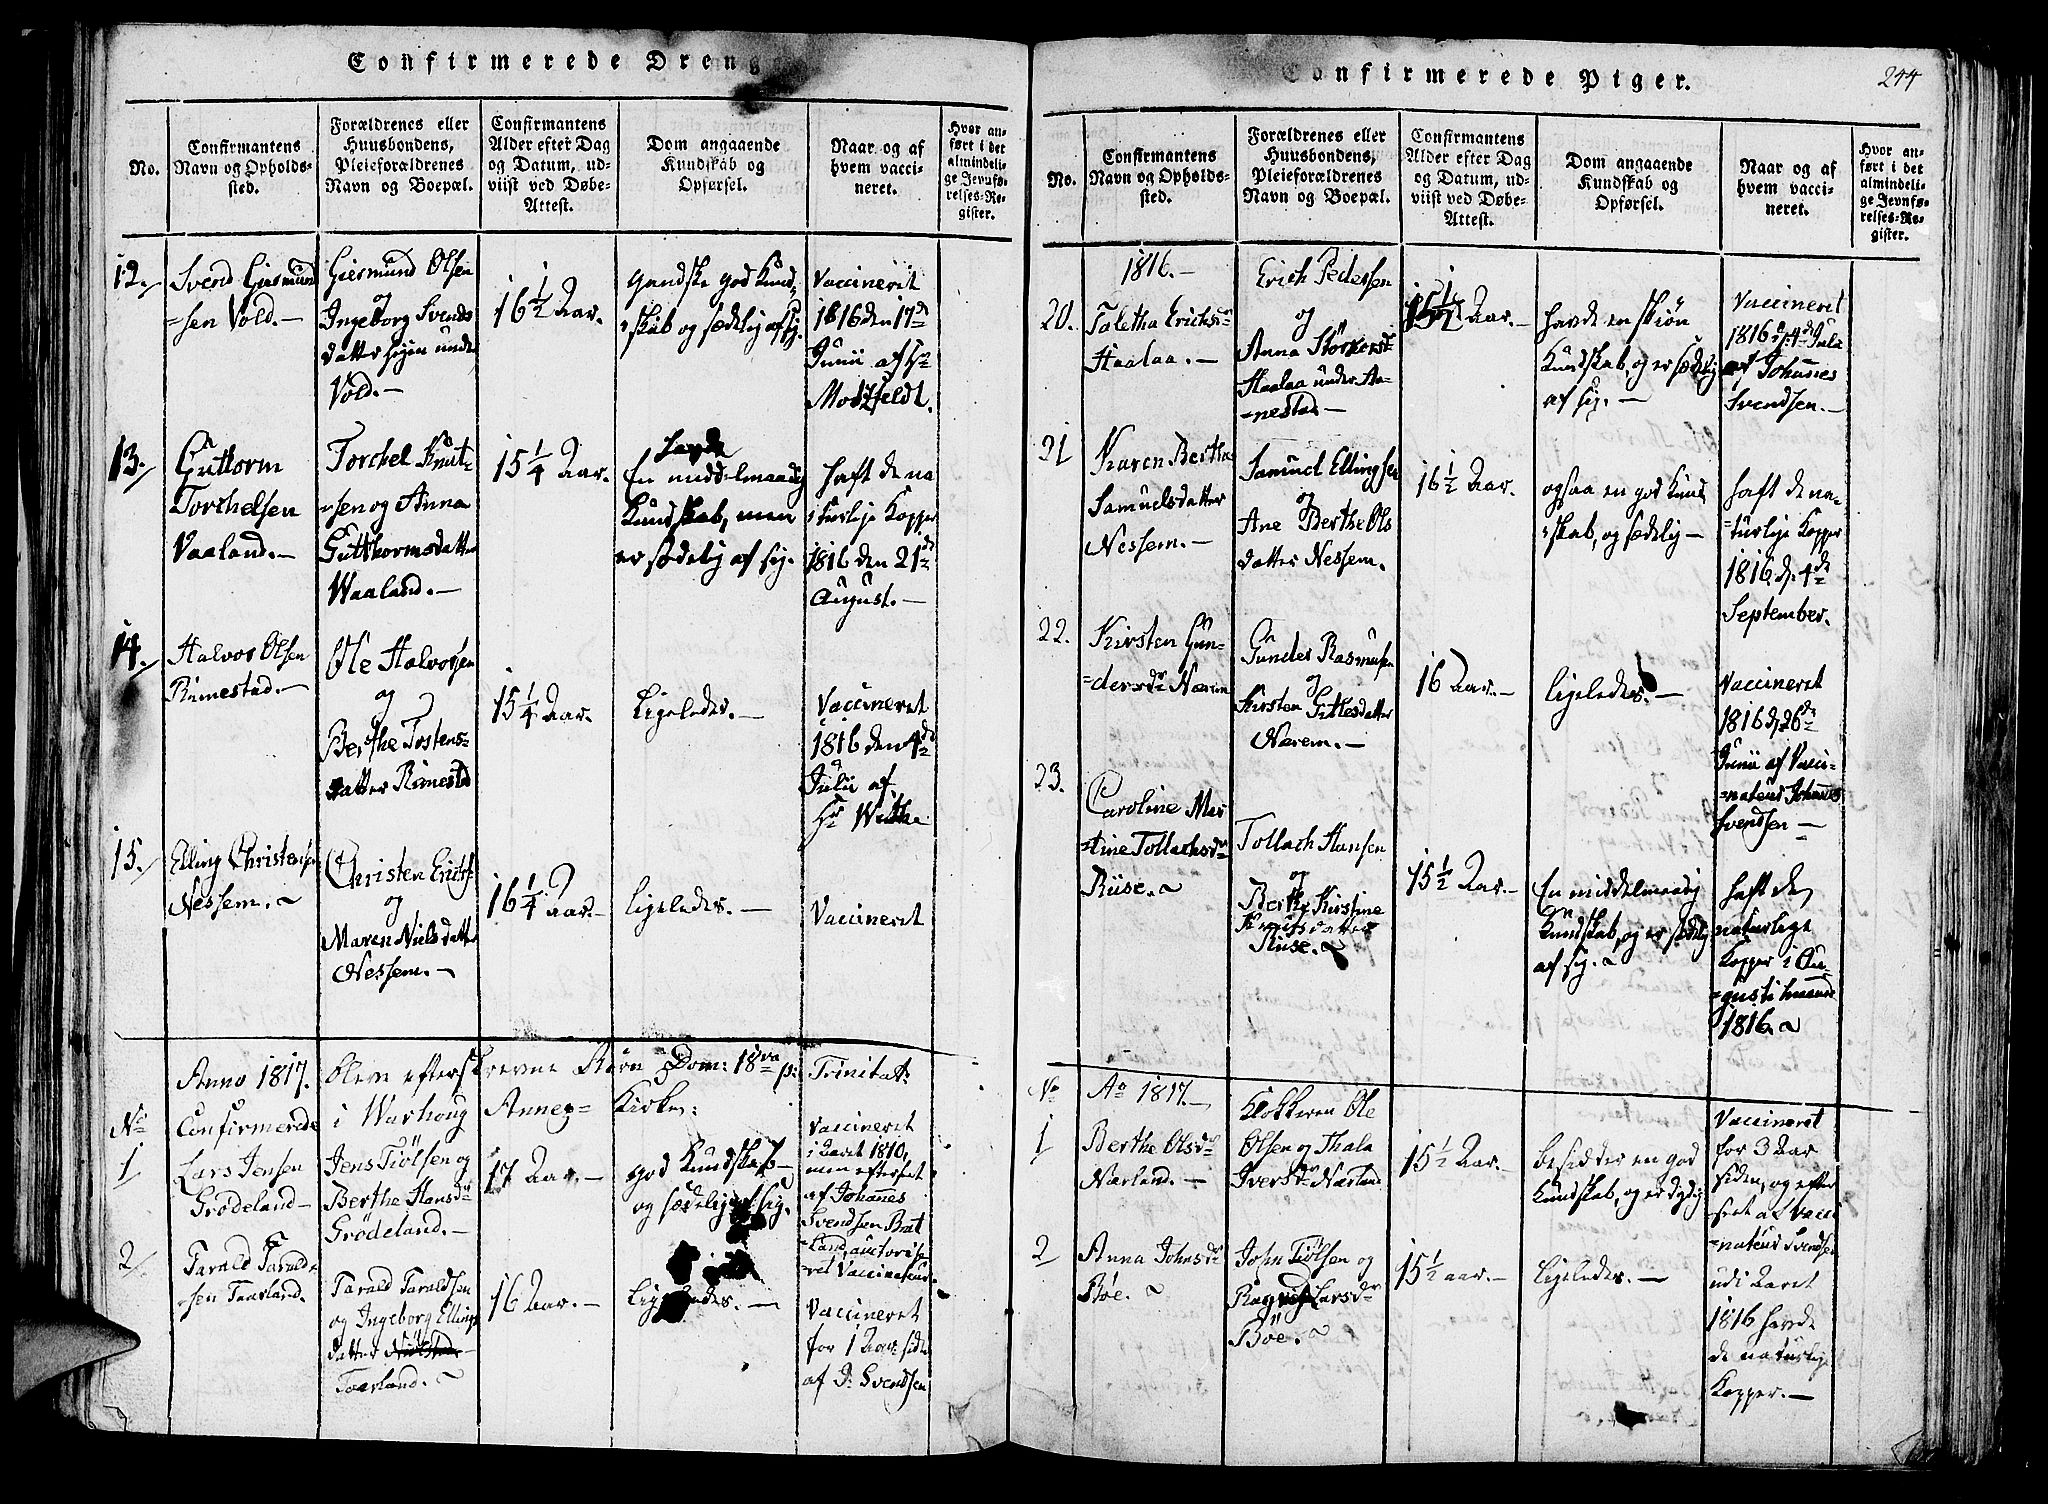 Confirmerede Dreng
No.
Confirmantens
Navn og Opholds-
sted.
Forældrenes eller
Huusbondens,
Pleieforældrenes
Navn og Boepæl.
Confirmantens
Alder efter Dag
og Datum, ud-
viist ved Døbe-
Attest.
Dom angaaende
Kundskab og
Opførsel.
Naar og af
hvem vacci-
neret.
Hvor an-
ført i det
almindeli-
ge Jevnfø-
relses-Re-
gister.
12.
Svend Giesmund
=sen Vold.—
Giesmund Olsen
og
Ingeborg Svends
datter Hejen under
Vold.—
16 1/2 Aar.
gandske god Kund
skab og sædelig af sig.
Vaccineret
1816 den 17de
Junii af Hr
Motzfeldt.
13.
Guttorm
Torchelsen
Vaaland.—
Torchel Knut=
=sen og Anna
Gutthormsdatter
Waaland.—
15 1/4 Aar.
havde
En middelmaadig
Kundskab, men
er sædelig af sig.
haft de na
turlige Kopper
1816 den 21de
August.—
14.
Halvor Olsen
Rimestad.—
Ole Halvorsen
og
Berthe Tostens=
datter Rimestad
15 1/4 Aar.
Ligeledes.—
Vaccineret
1816 den 4de
Julii af
Hr Withe
15.
Elling Christensen
Nessem.
Christen Erichs
og
Maren Nielsdatter
Nessem.—
16 1/4 Aar.—
ligeledes.—
Vaccineret
Anno 1817. Bleve efterskrevne Børn Dom: 18va p: Trinitat:
No Confirmerede i Warhoug Annex= Kirke:
1
Lars Jensen
Grødeland—
Jens Tiølsen og
Berthe Hansdr
Grødeland.—
17 Aar.—
god Kundskab—
og sædelig af sig.
Vaccineret
i Aaret 1810,
men efterset
af Johanes
Svendsen Brat
=land, auctorise
=ret Vaccinateur
2
Tarald Tarald=
=sen Taarland.
Tarald Taraldsen
og Ingeborg Ellings
datter
Taarland.
16 Aar.—
Ligeledes.—
Vaccineret
for 1 Aar siden
af D. Svendsen
Confirmerede Piger.
244
No.
Confirmantens
Navn og Opholds-
sted.
Forældrenes eller
Huusbondens,
Pleieforældrenes
Navn og Boepæl.
Confirmantens
Alder efter Dag
og Datum, ud-
viist ved Døbe-
Attest.
Dom angaaende
Kundskab og
Opførsel.
Naar og af
hvem vacci-
neret.
Hvor an-
ført i det
almindeli-
ge Jevnfø-
relses-Re-
gister.
1816.—
20.
Taletha Erichsdr
Haalaa.—
Erich Pedersen
og
Anna Storkersdr
Haalaa under Aa-
=nestad—
15 1/2 Aar.—
havde en skiøn
Kundskab, og er sædelig
af sig.—
Vaccineret
1816 d: 4de Julii
af Johannes
Svendsen.—
21
Karen Berthe
Samuelsdatter
Nessem.—
Samuel Ellingsen
og
Ane Berthe Ols
datter Nessem.
16 1/2 Aar.
ogsaa en god Kund
skab, og sædelig—
haft de na-
=turlige Kopper
1816 d. 4de
September.
22.
Kirsten Gun-
=dersdr Nærem
Gunder Rasmusen
og
Kirsten Gittesdatter
Nærem.—
16 Aar.—
ligeledes.—
Vaccineret
1816 d. 26de
Junii af Vacci-
=nateur Johannes
Svendsen—
23.
Caroline Mar
=tine Tollachsdr
Riise.
Tollach Hansen
og
Berthe Kirstine
Knuts datter
Riise.
15 1/2 Aar.—
En middelmaadig
Kundskab, og er sædelig
af sig.
haft de
naturlige
Kopper i Au-
=gusti maaned
1816.
No
Ao 1817.—
1
Berthe Olsdr
Nærland.—
Klokkeren Ole
Olsen og Thala
Iversdr Nærland
15 1/2 Aar.—
besidder en god
Kundskab, og er dydig
Vaccineret
for 3 Aar
siden, og efter
=set af Vacci
=nateur Svendsen
2
Anna Johnsdr
Bøe.
John Tiølsen og
Larsdr
Böe.
15 1/2 aar.—
Ligeledes.—
udi Aaret
1816 havde
de naturlige
Kopper.—